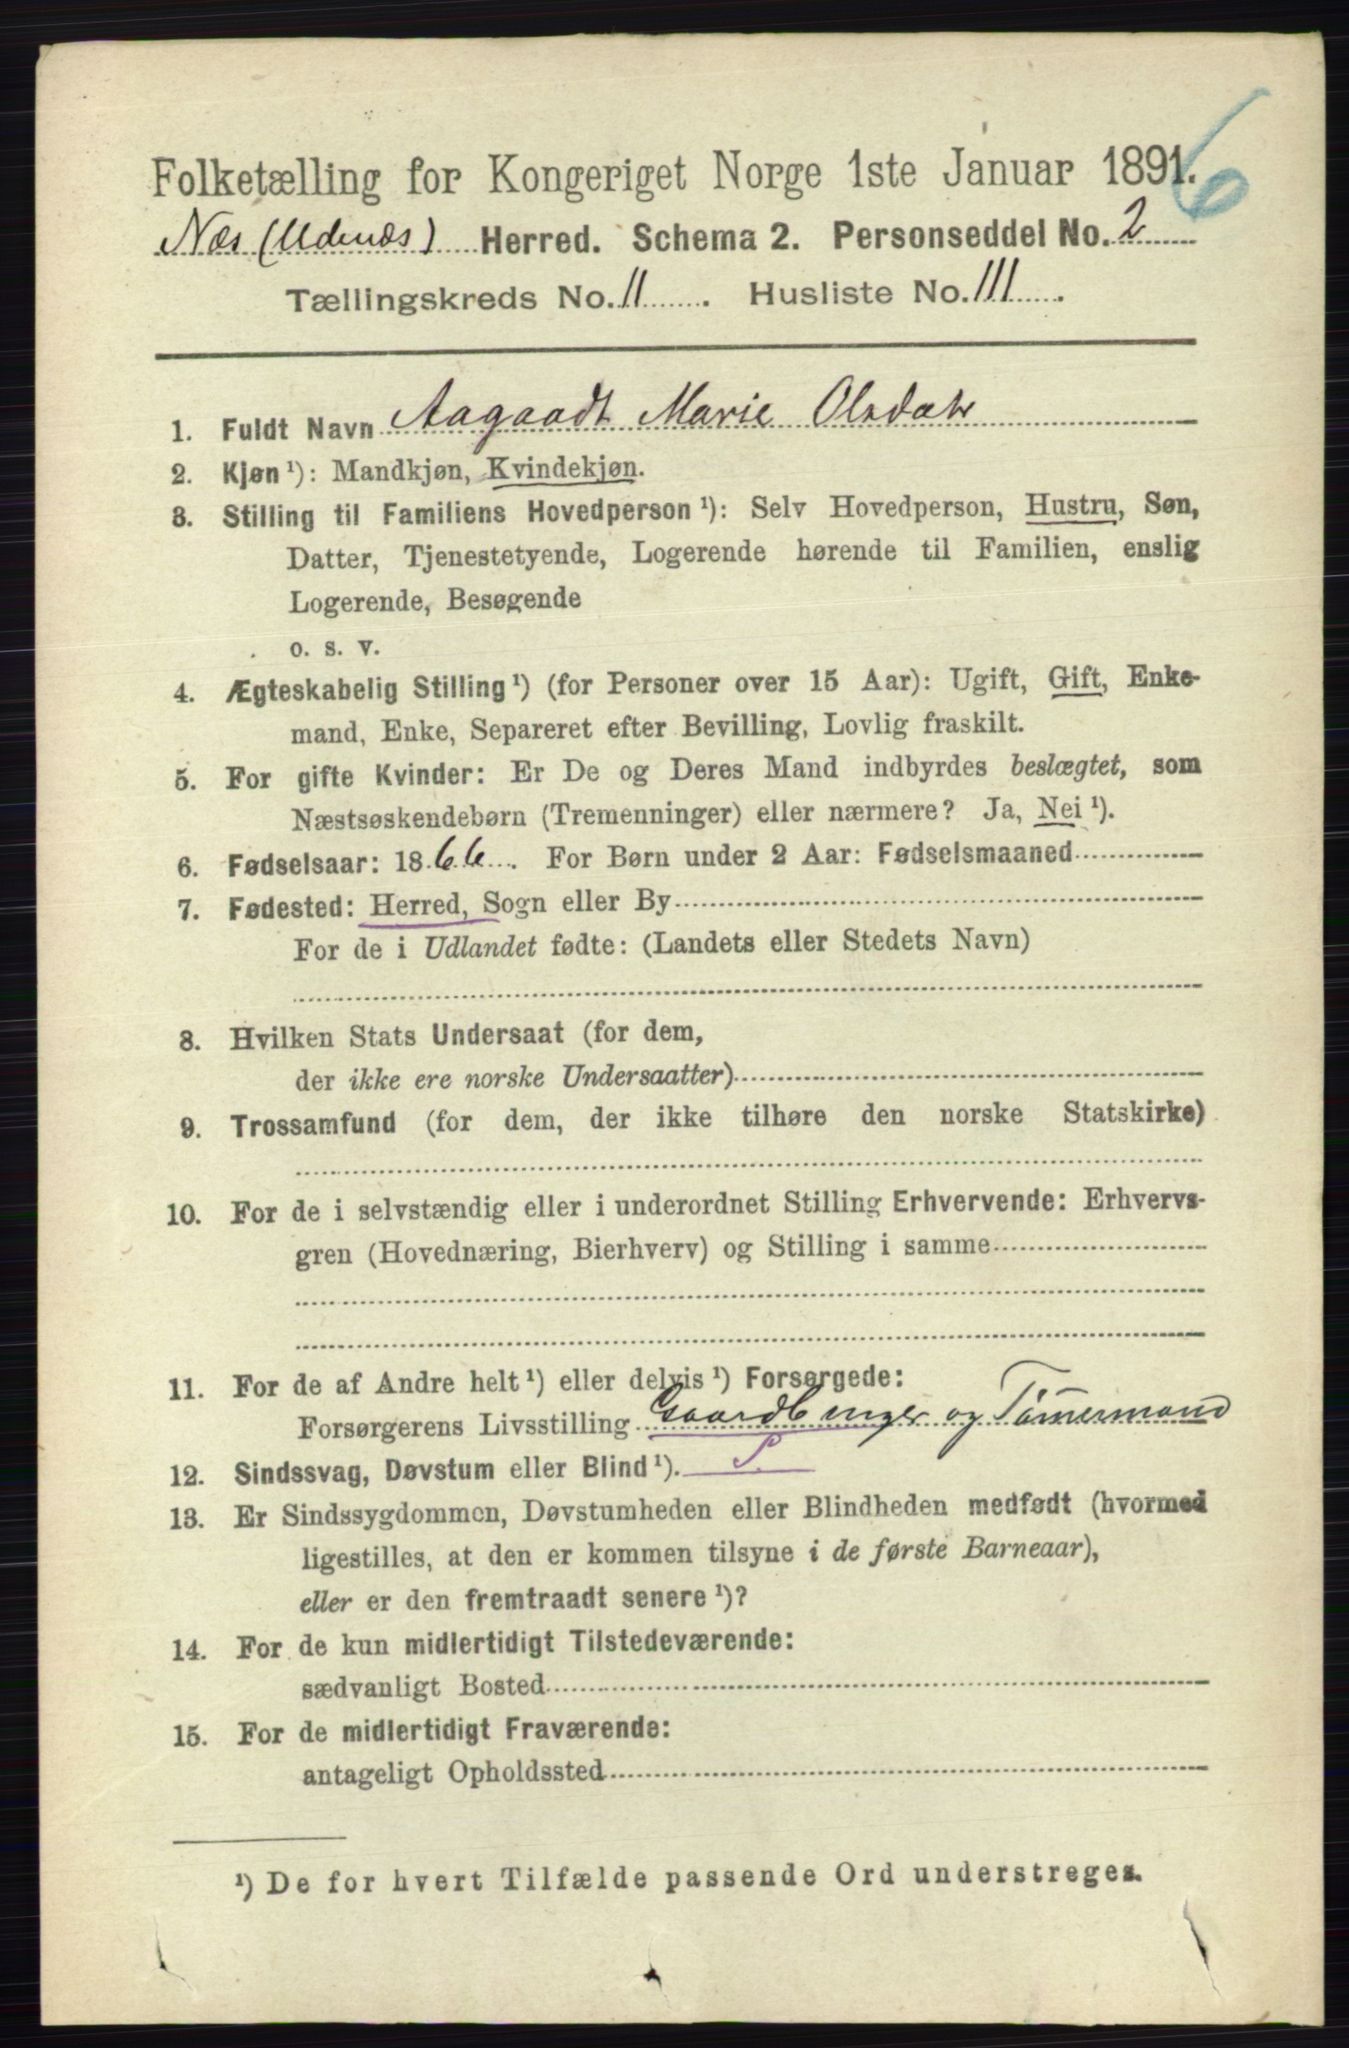 6
Folketælling for Kongeriget Norge 1ste Januar 1891.
Næs (Udenæs) Herred. Schema 2. Personseddel No. 2
Tællingskreds No. 11. Husliste No. 111.
1. Fuldt Navn Aagaadt Marie Olsdatr
2. Kjøn ¹): Mandkjøn, Kvindekjøn.
3. Stilling til Familiens Hovedperson ¹): Selv Hovedperson, Hustru, Søn,
Datter, Tjenestetyende, Logerende hørende til Familien, enslig
Logerende, Besøgende
o. s. v.
4. Ægteskabelig Stilling ¹) (for Personer over 15 Aar): Ugift, Gift, Enke-
mand, Enke, Separeret efter Bevilling, Lovlig fraskilt.
5. For gifte Kvinder: Er De og Deres Mand indbyrdes beslægtet, som
Næstsøskendebørn (Tremenninger) eller nærmere? Ja, Nei ¹).
6. Fødselsaar: 1866. For Børn under 2 Aar: Fødselsmaaned
7. Fødested: Herred, Sogn eller By
For de i Udlandet fødte: (Landets eller Stedets Navn)
8. Hvilken Stats Undersaat (for dem,
der ikke ere norske Undersaatter)
9. Trossamfund (for dem, der ikke tilhøre den norske Statskirke)
10. For de i selvstændig eller i underordnet Stilling Erhvervende: Erhvervs-
gren (Hovednæring, Bierhverv) og Stilling i samme
11. For de af Andre helt ¹) eller delvis ¹) Forsørgede:
Forsørgerens Livsstilling Gaardbruger og Tømermand
12. Sindssvag, Døvstum eller Blind ¹). S.
13. Er Sindssygdommen, Døvstumheden eller Blindheden medfødt (hvormed
ligestilles, at den er kommen tilsyne i de første Barneaar),
eller er den fremtraadt senere ¹)?
14. For de kun midlertidigt Tilstedeværende:
sædvanligt Bosted
15. For de midlertidigt Fraværende:
antageligt Opholdssted
¹) De for hvert Tilfælde passende Ord understreges.